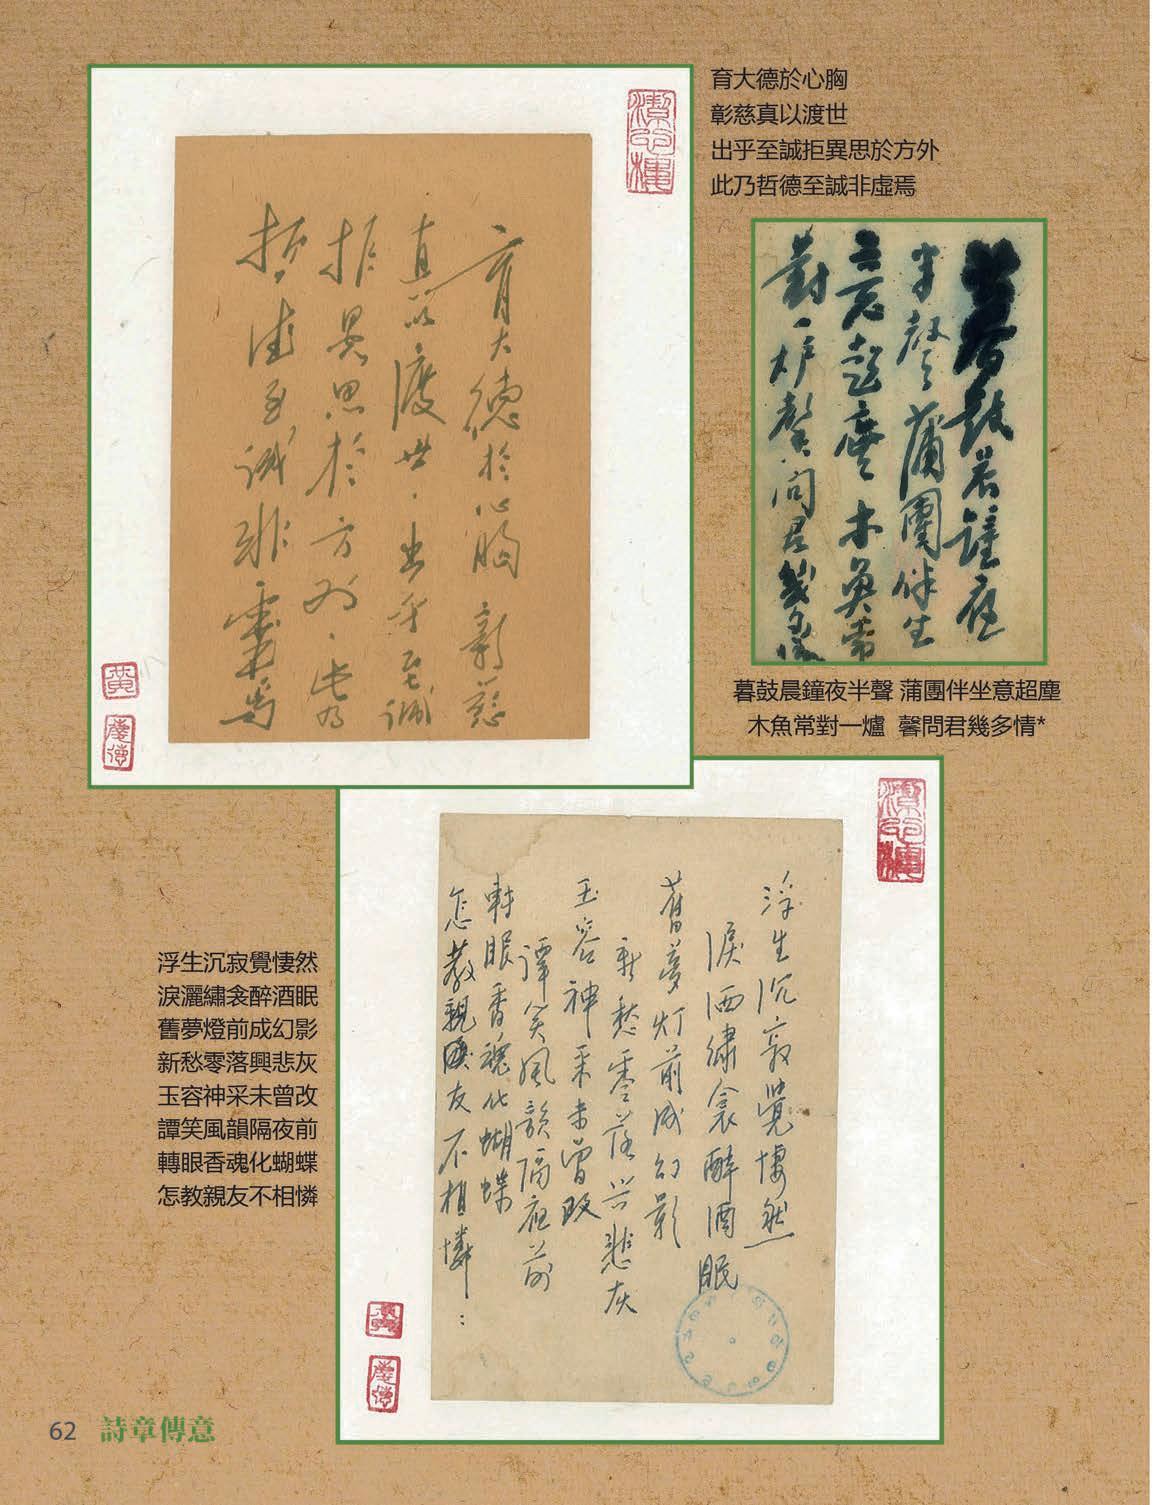 育大德於心胸
彰慈真以渡世
出乎至誠拒異思於方外
此乃哲德至誠非虛焉
育大德於心胸彰慈
真以渡世．出乎至誠
拒異思於方外．此乃
哲德至誠非虛焉
暮鼓晨鐘夜
半聲蒲團伴坐
意超塵木魚常
對一炉馨问君幾多情
暮鼓晨鐘夜半聲 蒲團伴坐意超塵
木魚常對一爐 馨問君幾多情*
浮生沉寂覺悽然
淚灑繡衾醉酒眠
舊夢燈前成幻影
新愁零落興悲灰
玉容神采未曾改
譚笑風韻隔夜前
轉眼香魂化蝴蝶
怎教親友不相憐
浮生沉寂覺悽然
淚洒繡衾醉酒眠
舊夢灯前成幻影
新愁零落兴悲灰
玉容神采未曾改
譚笑風韻隔夜前
轉眼香魂化蝴蝶
怎教親友不相憐：
黃
慶德
黃
慶德
62 詩章傳意